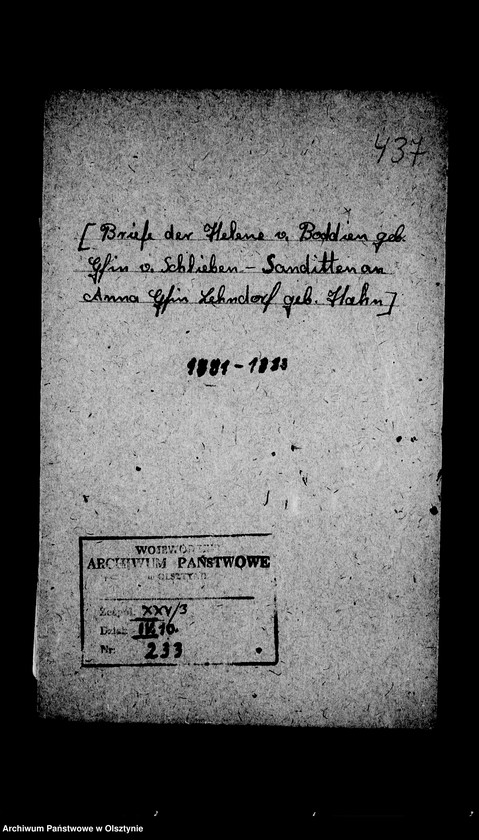 437
[Briefe der Helene v. Boddien geb.
Gfin v. Schlieben - Sanditten an
Anna Gfin Lehndorf geb. Hahn]
WOJEWÓDZKIE
ARCHIWUM PAŃSTWOWE
w OLSZTYNIE
Zespół XXV/3
Dział
Nr. 233
Archiwum Państwowe w Olsztynie